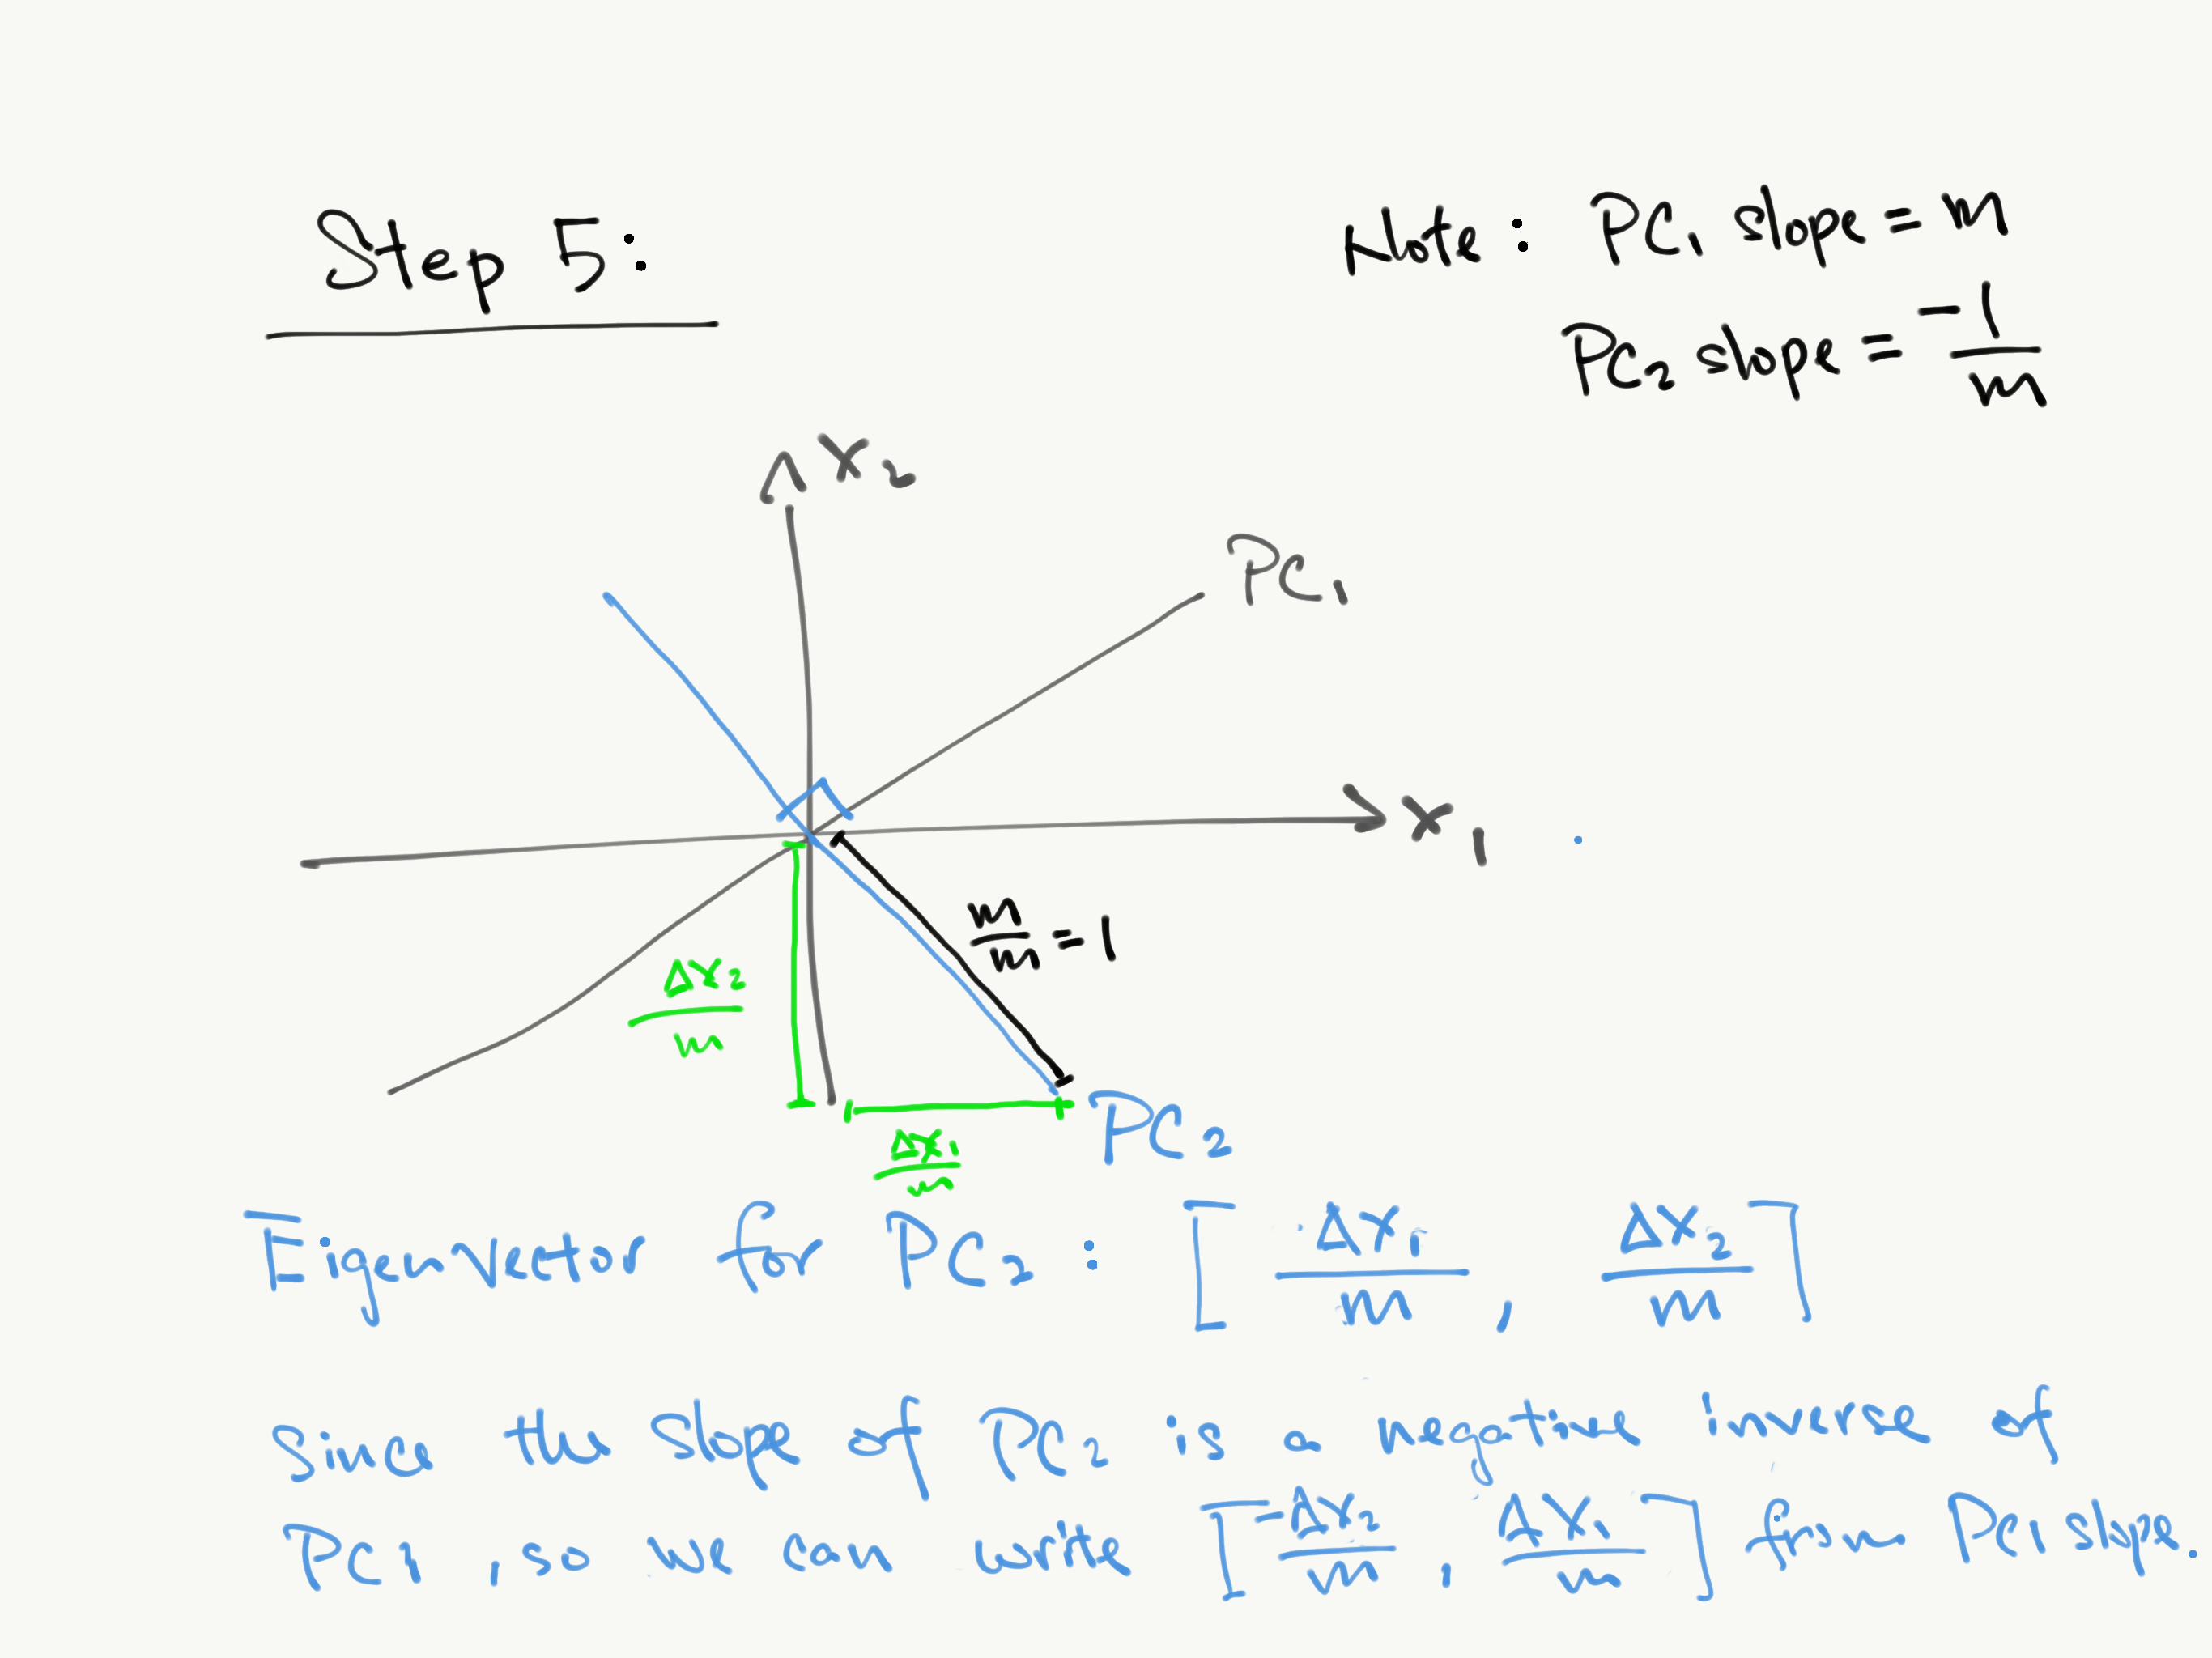 Step 5:
Note: PC₁ slope = m
PC₂ slope = -1/m
x₂
PC₁
x₁
m/m = 1
Δx₂/m
Δx₁/m
PC₂
Eigenvector for PC₂: [Δx₁/m, Δx₂/m]
since the slope of PC₂ is a negative inverse of
PC₁, so we can write [-Δx₂/m, Δx₁/m] from PC₁ slope.